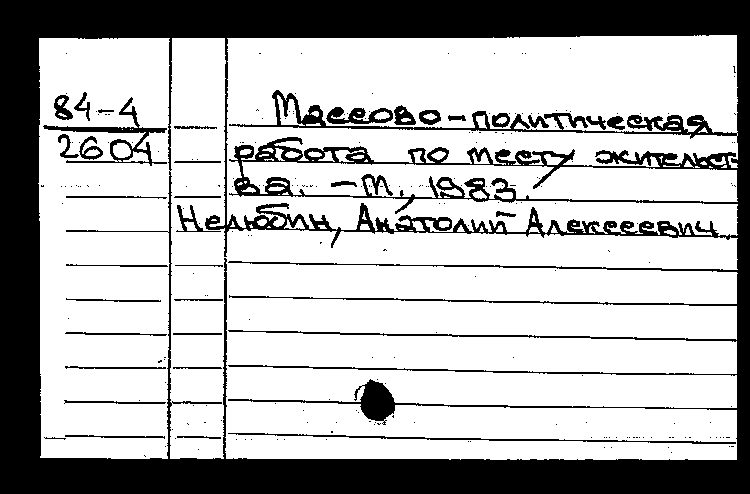 84-4
2604
Массово-политическая
работа по месту жительст-
ва. - М., 1983.
Нелюбин, Анатолий Алексеевич